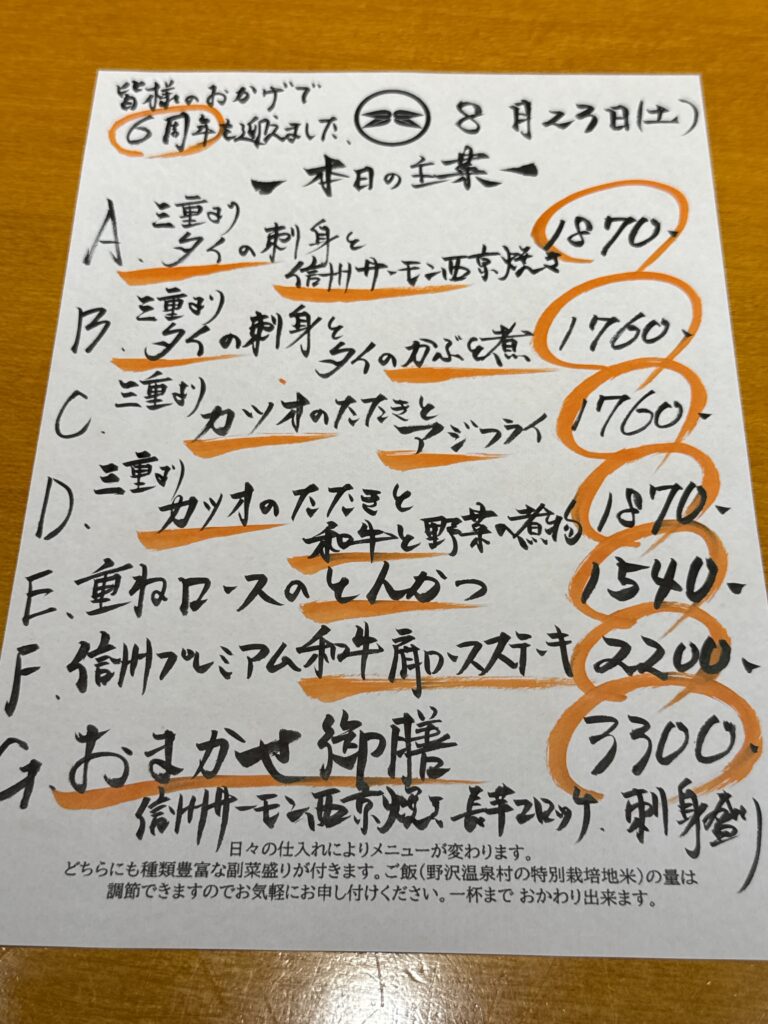 皆様のおかげで
6周年を迎えました、
8月23日(土)
ー本日の主菜ー
A、三重より
タイの刺身と
信州サーモン西京焼き 1870、
B、三重より
タイの刺身と
タイのかぶと煮 1760、
C、三重より
カツオのたたきと
アジフライ 1760、
D、三重より
カツオのたたきと
和牛と野菜の煮物 1870、
E、重ねロースのとんかつ 1540、
F、信州プレミアム和牛肩ロースステーキ 2200、
G、おまかせ御膳 3300、
信州サーモン西京焼き、長芋コロッケ、刺身盛り
日々の仕入れによりメニューが変わります。
どちらにも種類豊富な副菜盛りが付きます。ご飯(野沢温泉村の特別栽培地米)の量は
調節できますのでお気軽にお申し付けください。一杯まで おかわり出来ます。